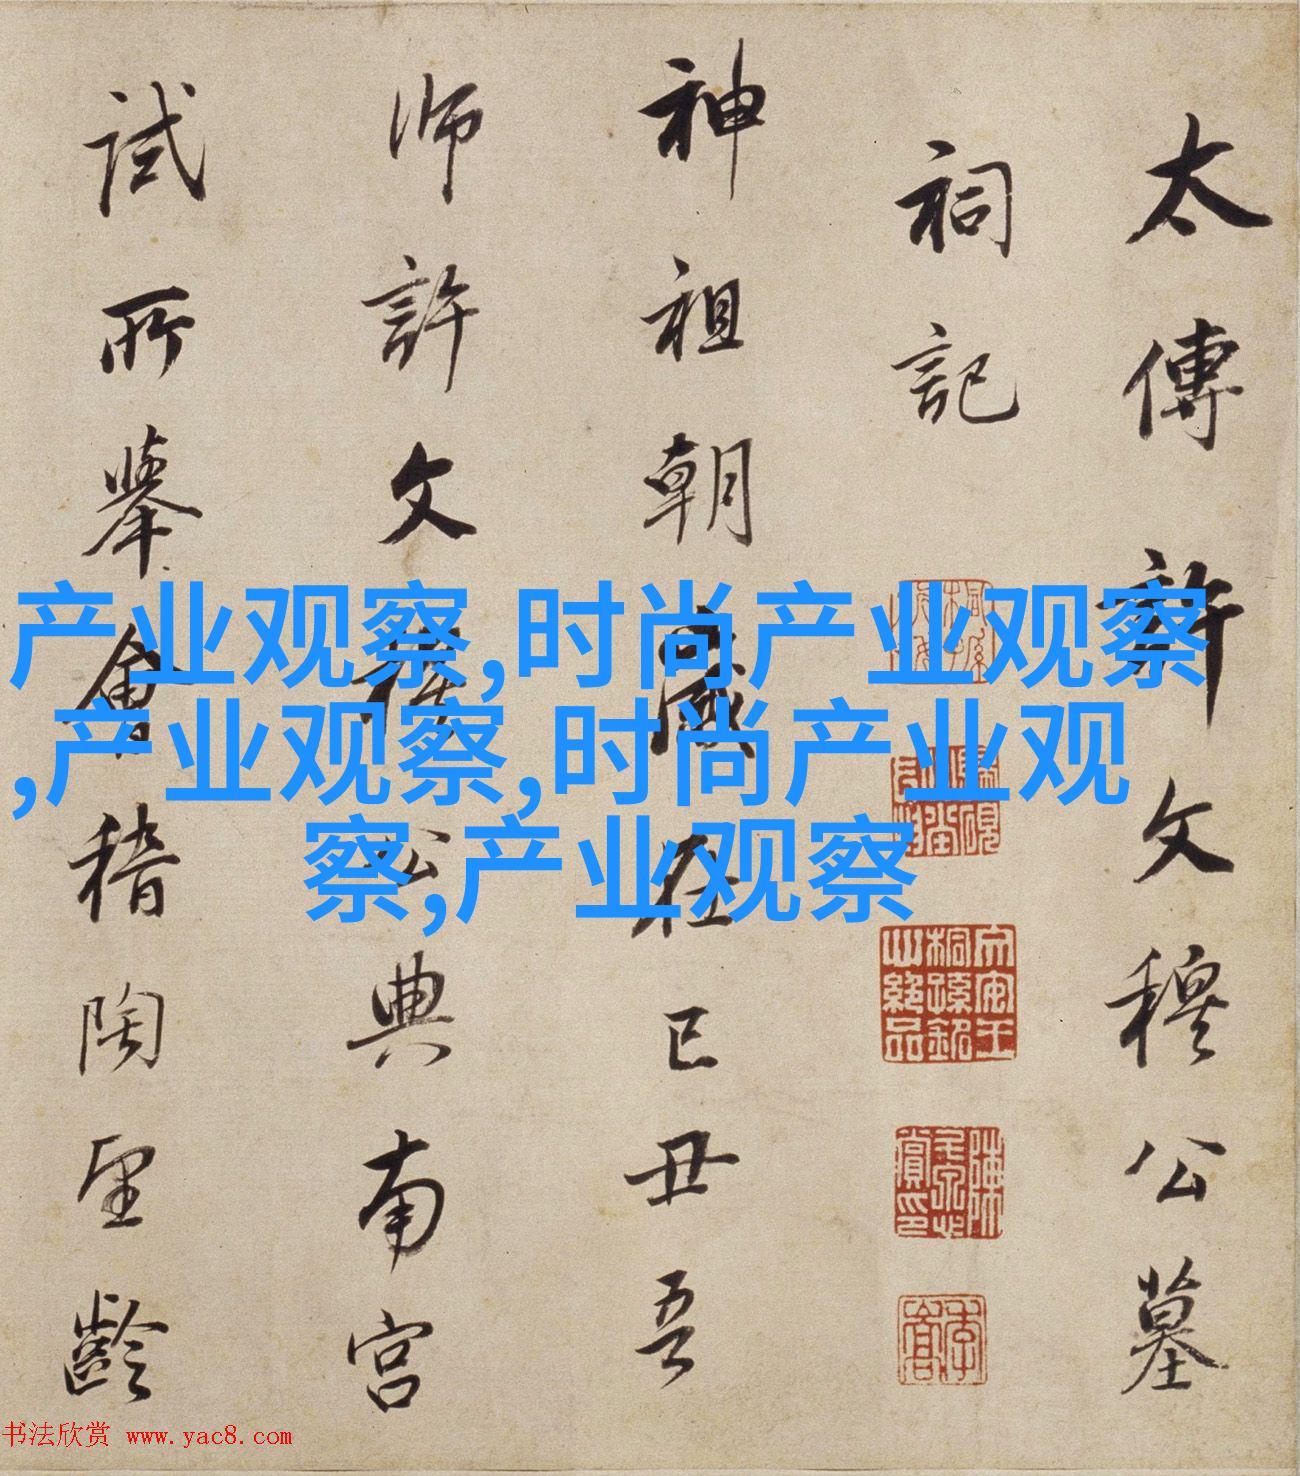 太傅許文穆公墓
祠記
神祖朝盛在己丑吾
师許文穆公典南宮
試所舉會稽陶望齡
产业观察,时尚产业观察
,产业观察,时尚产业观
察,产业观察
书法欣赏 www.yac8.com